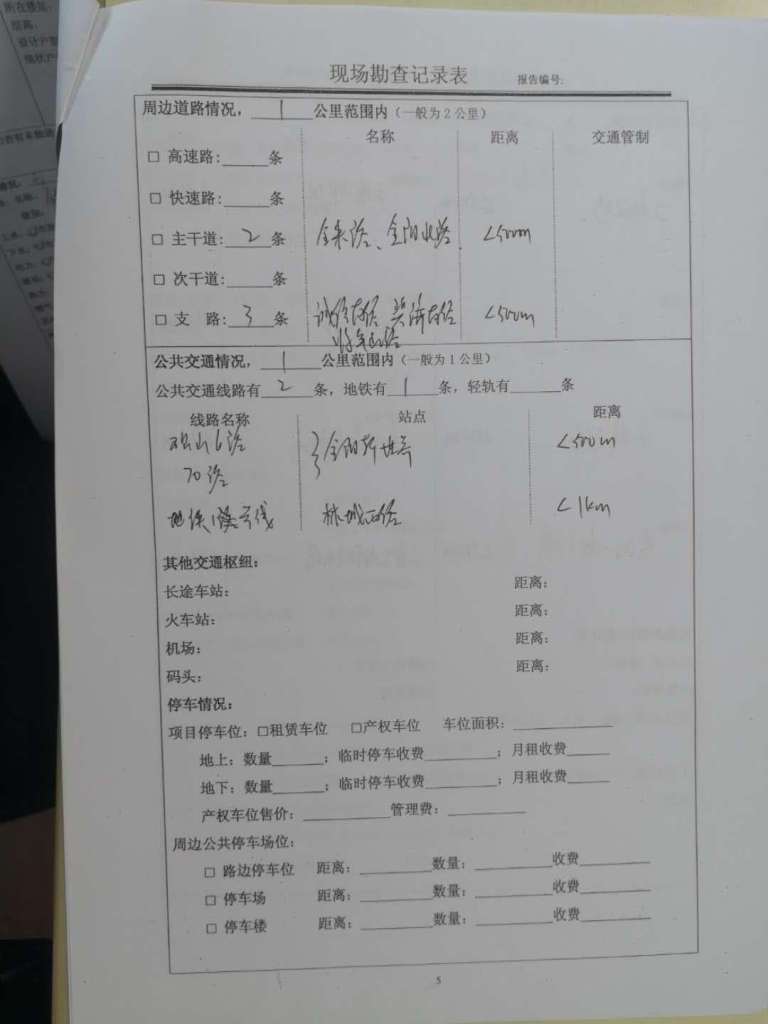 现场勘查记录表 报告编号:
周边道路情况, 1 公里范围内(一般为2公里)
名称 距离 交通管制
□ 高速路: 条
□ 快速路: 条
□ 主干道: 2 条 金朱路、金阳北路 <500m
□ 次干道: 条
□ 支 路: 3 条 <500m
公共交通情况, 1 公里范围内(一般为1公里)
公共交通线路有 2 条, 地铁有 1 条, 轻轨有 条
线路名称 站点 距离
观山6路 金阳新世界 <500m
70路
地铁1号线 林城西路 <1km
其他交通枢纽:
长途车站: 距离:
火车站: 距离:
机场: 距离:
码头: 距离:
停车情况:
项目停车位: □租赁车位 □产权车位 车位面积:
地上: 数量 ; 临时停车收费 ; 月租收费
地下: 数量 ; 临时停车收费 ; 月租收费
产权车位售价: 管理费:
周边公共停车场位:
□ 路边停车位 距离: 数量: 收费
□ 停车场 距离: 数量: 收费
□ 停车楼 距离: 数量: 收费
5